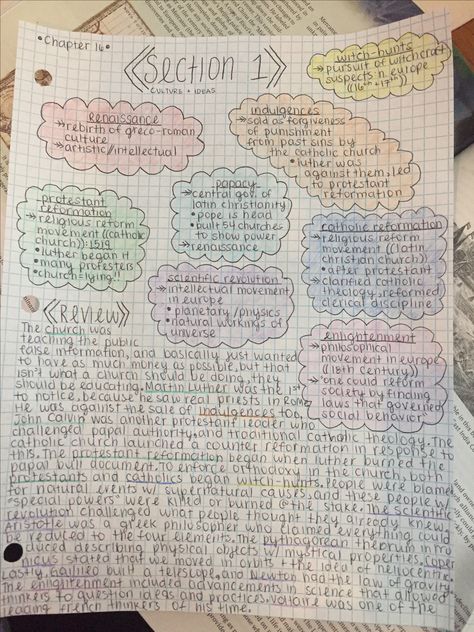 •Chapter 16•
Section 1
CULTURE + IDEAS
witch-hunts
→pursuit of witchcraft
suspects in europe
((16th+17th))
Renaissance
→rebirth of greco-roman
culture
→artistic/intellectual
indulgences
→sold as forgiveness
of punishment
from past sins by
the catholic church
•luther was
against them, led
to protestant
reformation
protestant
reformation
→religious reform
movement ((catholic
church)): 1519
•luther began it
•many protesters
•church=lying!!
papacy
→central gov. of
latin christianity
•pope is head
•built 54 churches
to show power
→renaissance
catholic reformation
→religious reform
movement ((latin
christian church))
•after protestant
→clarified catholic
theology, reformed
clerical discipline
scientific revolution
→intellectual movement
in europe
•planetary/physics
•natural workings of
universe
enlightenment
→philosophical
movement in europe
((18th century))
•one could reform
society by finding
laws that governed
social behavior
Review
The church was
teaching the public
false information, and basically just wanted
to have as much money as possible, but that
isn't what a church should be doing, they
should be educating. Martin Luther was the 1st
to notice, because he saw real priests in Rome.
He was against the sale of indulgences too.
John Calvin was another protestant leader who
challenged papal authority, and traditional catholic theology. The
catholic church launched a counter reformation in response to
this. The protestant reformation began when luther burned the
papal bull document. To enforce orthodoxy in the church, both
protestants and catholics began witch hunts. People were blamed
for natural events w/ supernatural causes, and these people w/
"special powers" were killed or burned @ the stake. The scientific
revolution challenged what people thought they already knew.
Aristotle was a greek philosopher who claimed everything could
be reduced to the four elements. The pythagorean theorum intro
duced describing physical objects w/ mystical properties. Coper
nicus stated that we moved in orbits + the idea of heliocentric.
Lastly, Galileo built a telescope, and Newton had the law of gravity.
The enlightenment included advancements in science that allowed
thinkers to question ideas and practices. Voltaire was one of the
leading french thinkers of his time.